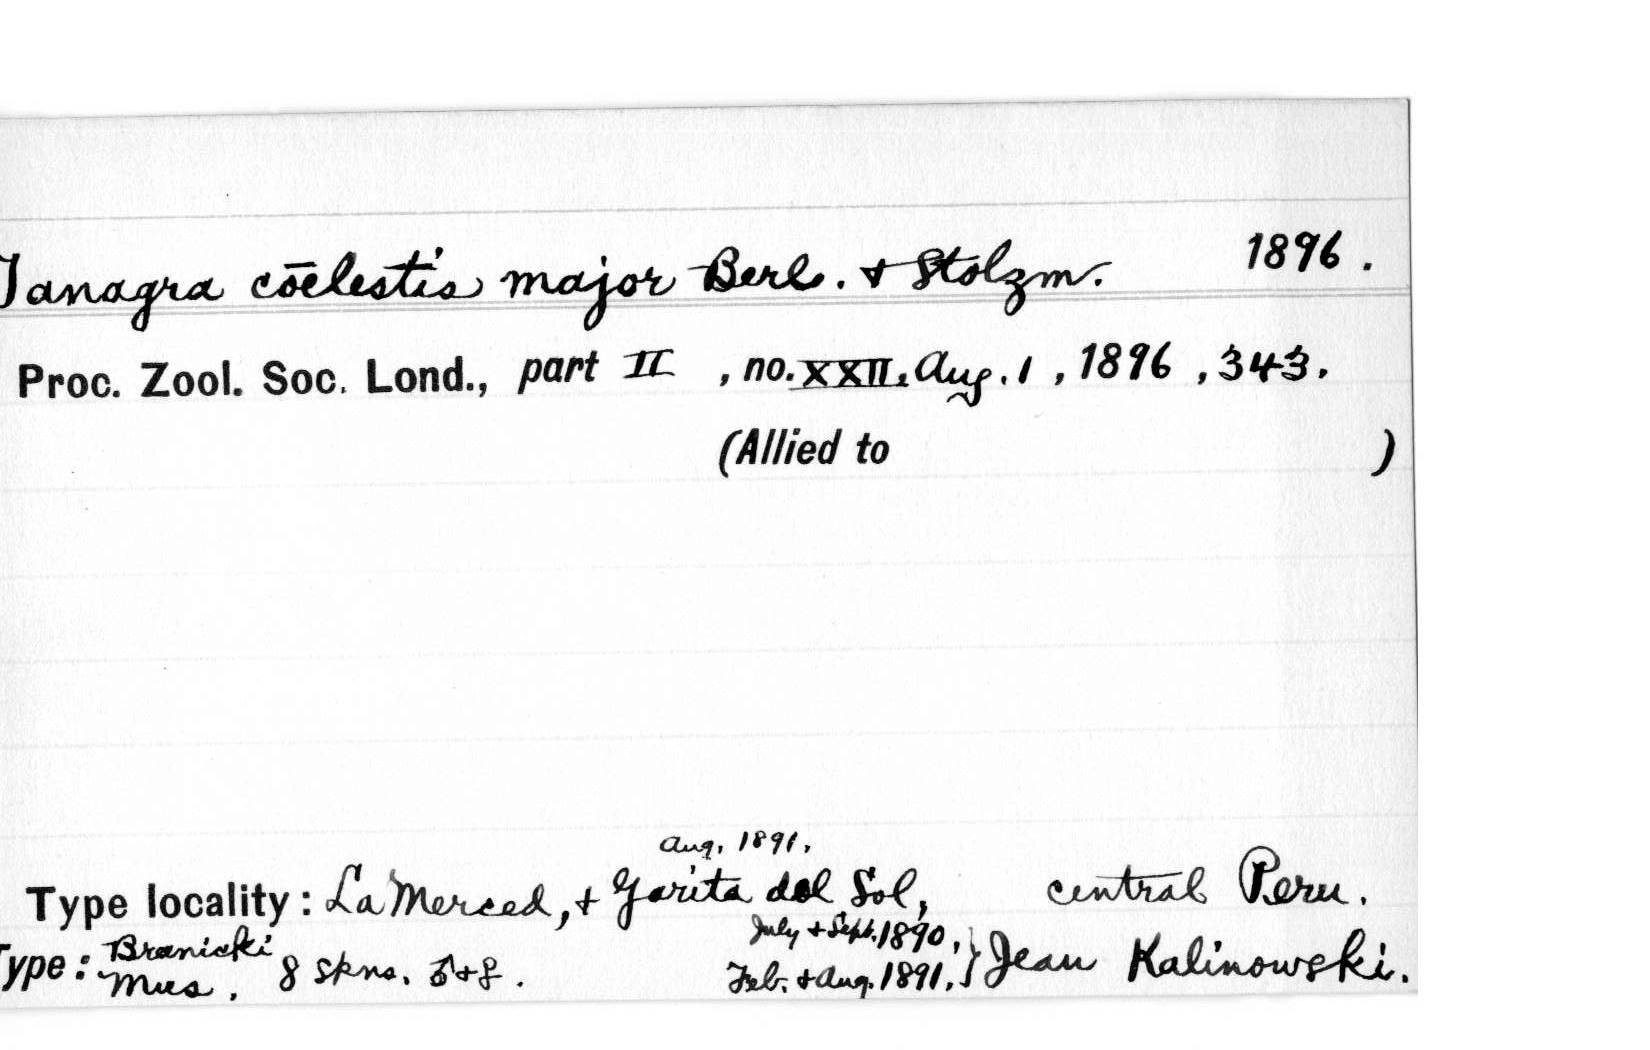 Tanagra cōelestis major Berl. & Stolzm. 1896.
Proc. Zool. Soc. Lond., part II, no. XXII, Aug. 1, 1896, 343.
(Allied to )
Aug. 1891.
Type locality: La Merced, & Garita del Sol, central Peru.
July & Sept. 1890,
Type: Branicki Mus. 8 skns. ♂ & ♀. Feb. & Aug. 1891. } Jean Kalinowski.